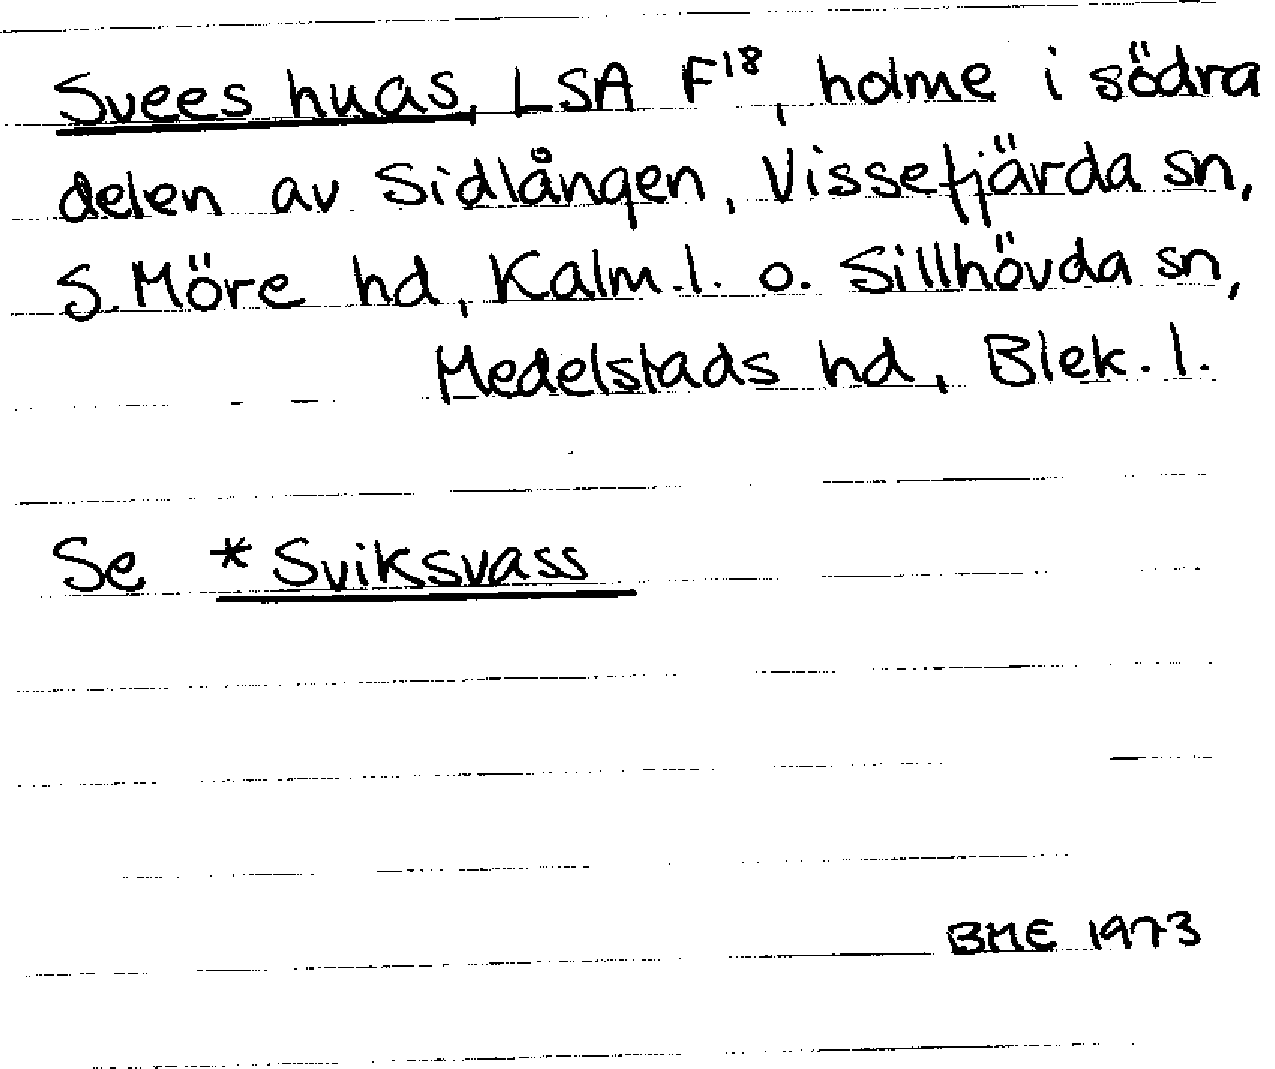 Svees huas, LSA F18, holme i södra
delen av Sidlången, Vissefjärda sn,
S. Möre hd, Kalm. l. o. Sillhövda sn,
Medelstads hd, Blek. l.
Se *Sviksvass
BME 1973